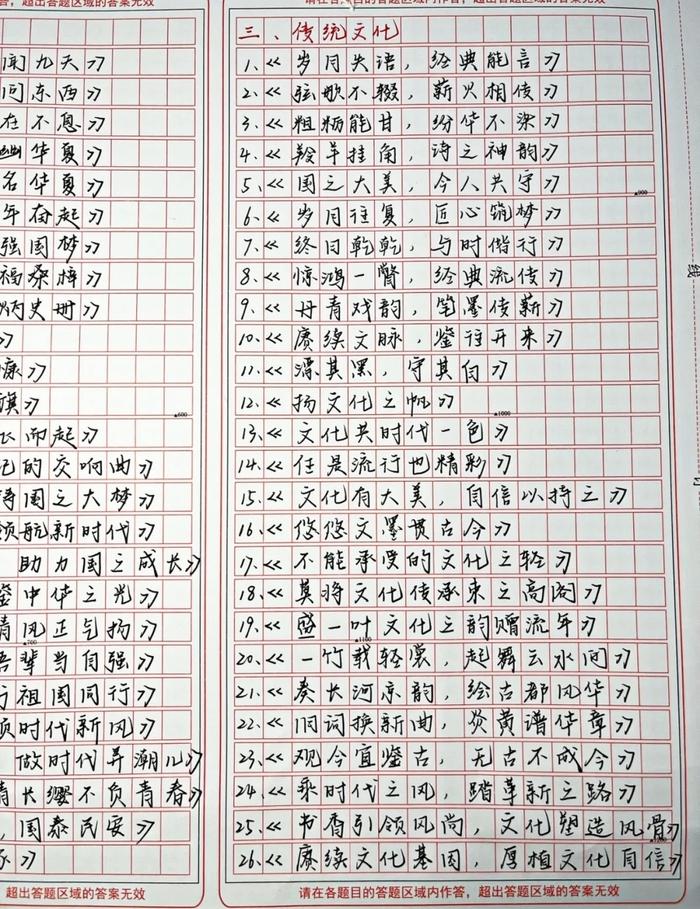 超出答题区域的答案无效
闻九天》
问东西》
在不息》
幽华夏》
名华夏》
年奋起》
强国梦》
福桑梓》
炳史册》
》
康》
旗》
▲600
而起》
的交响曲》
国之大梦》
领航新时代》
助力国之成长》
鉴中华之光》
清风正气扬》
▲700
吾辈当自强》
与祖国同行》
领时代新风》
做时代弄潮儿》
请长缨不负青春》
,国泰民安》
》
超出答题区域的答案无效
请在各题目的答题区域内作答,超出答题区域的答案无效
三、传统文化
1、《岁月失语,经典能言》
2、《弦歌不辍,薪火相传》
3、《粗粝能甘,纷华不染》
4、《羚羊挂角,诗之神韵》
5、《国之大美,今人共守》
▲900
6、《岁月往复,匠心筑梦》
7、《终日乾乾,与时偕行》
8、《惊鸿一瞥,经典流传》
9、《丹青戏韵,笔墨传薪》
10、《赓续文脉,鉴往开来》
11、《漂其黑,守其白》
12、《扬文化之帆》
▲1000
13、《文化共时代一色》
14、《任是流行也精彩》
15、《文化有大美,自信以持之》
16、《悠悠文墨贯古今》
17、《不能承受的文化之轻》
18、《莫将文化传承束之高阁》
19、《盛一叶文化之韵赠流年》
▲1100
20、《一竹载轻裳,起舞云水间》
21、《奏长河京韵,绘古都风华》
22、《旧词换新曲,炎黄谱华章》
23、《观今宜鉴古,无古不成今》
24、《乘时代之风,踏革新之路》
25、《书香引领风尚,文化塑造风骨》
26、《赓续文化基因,厚植文化自信》
请在各题目的答题区域内作答,超出答题区域的答案无效
线